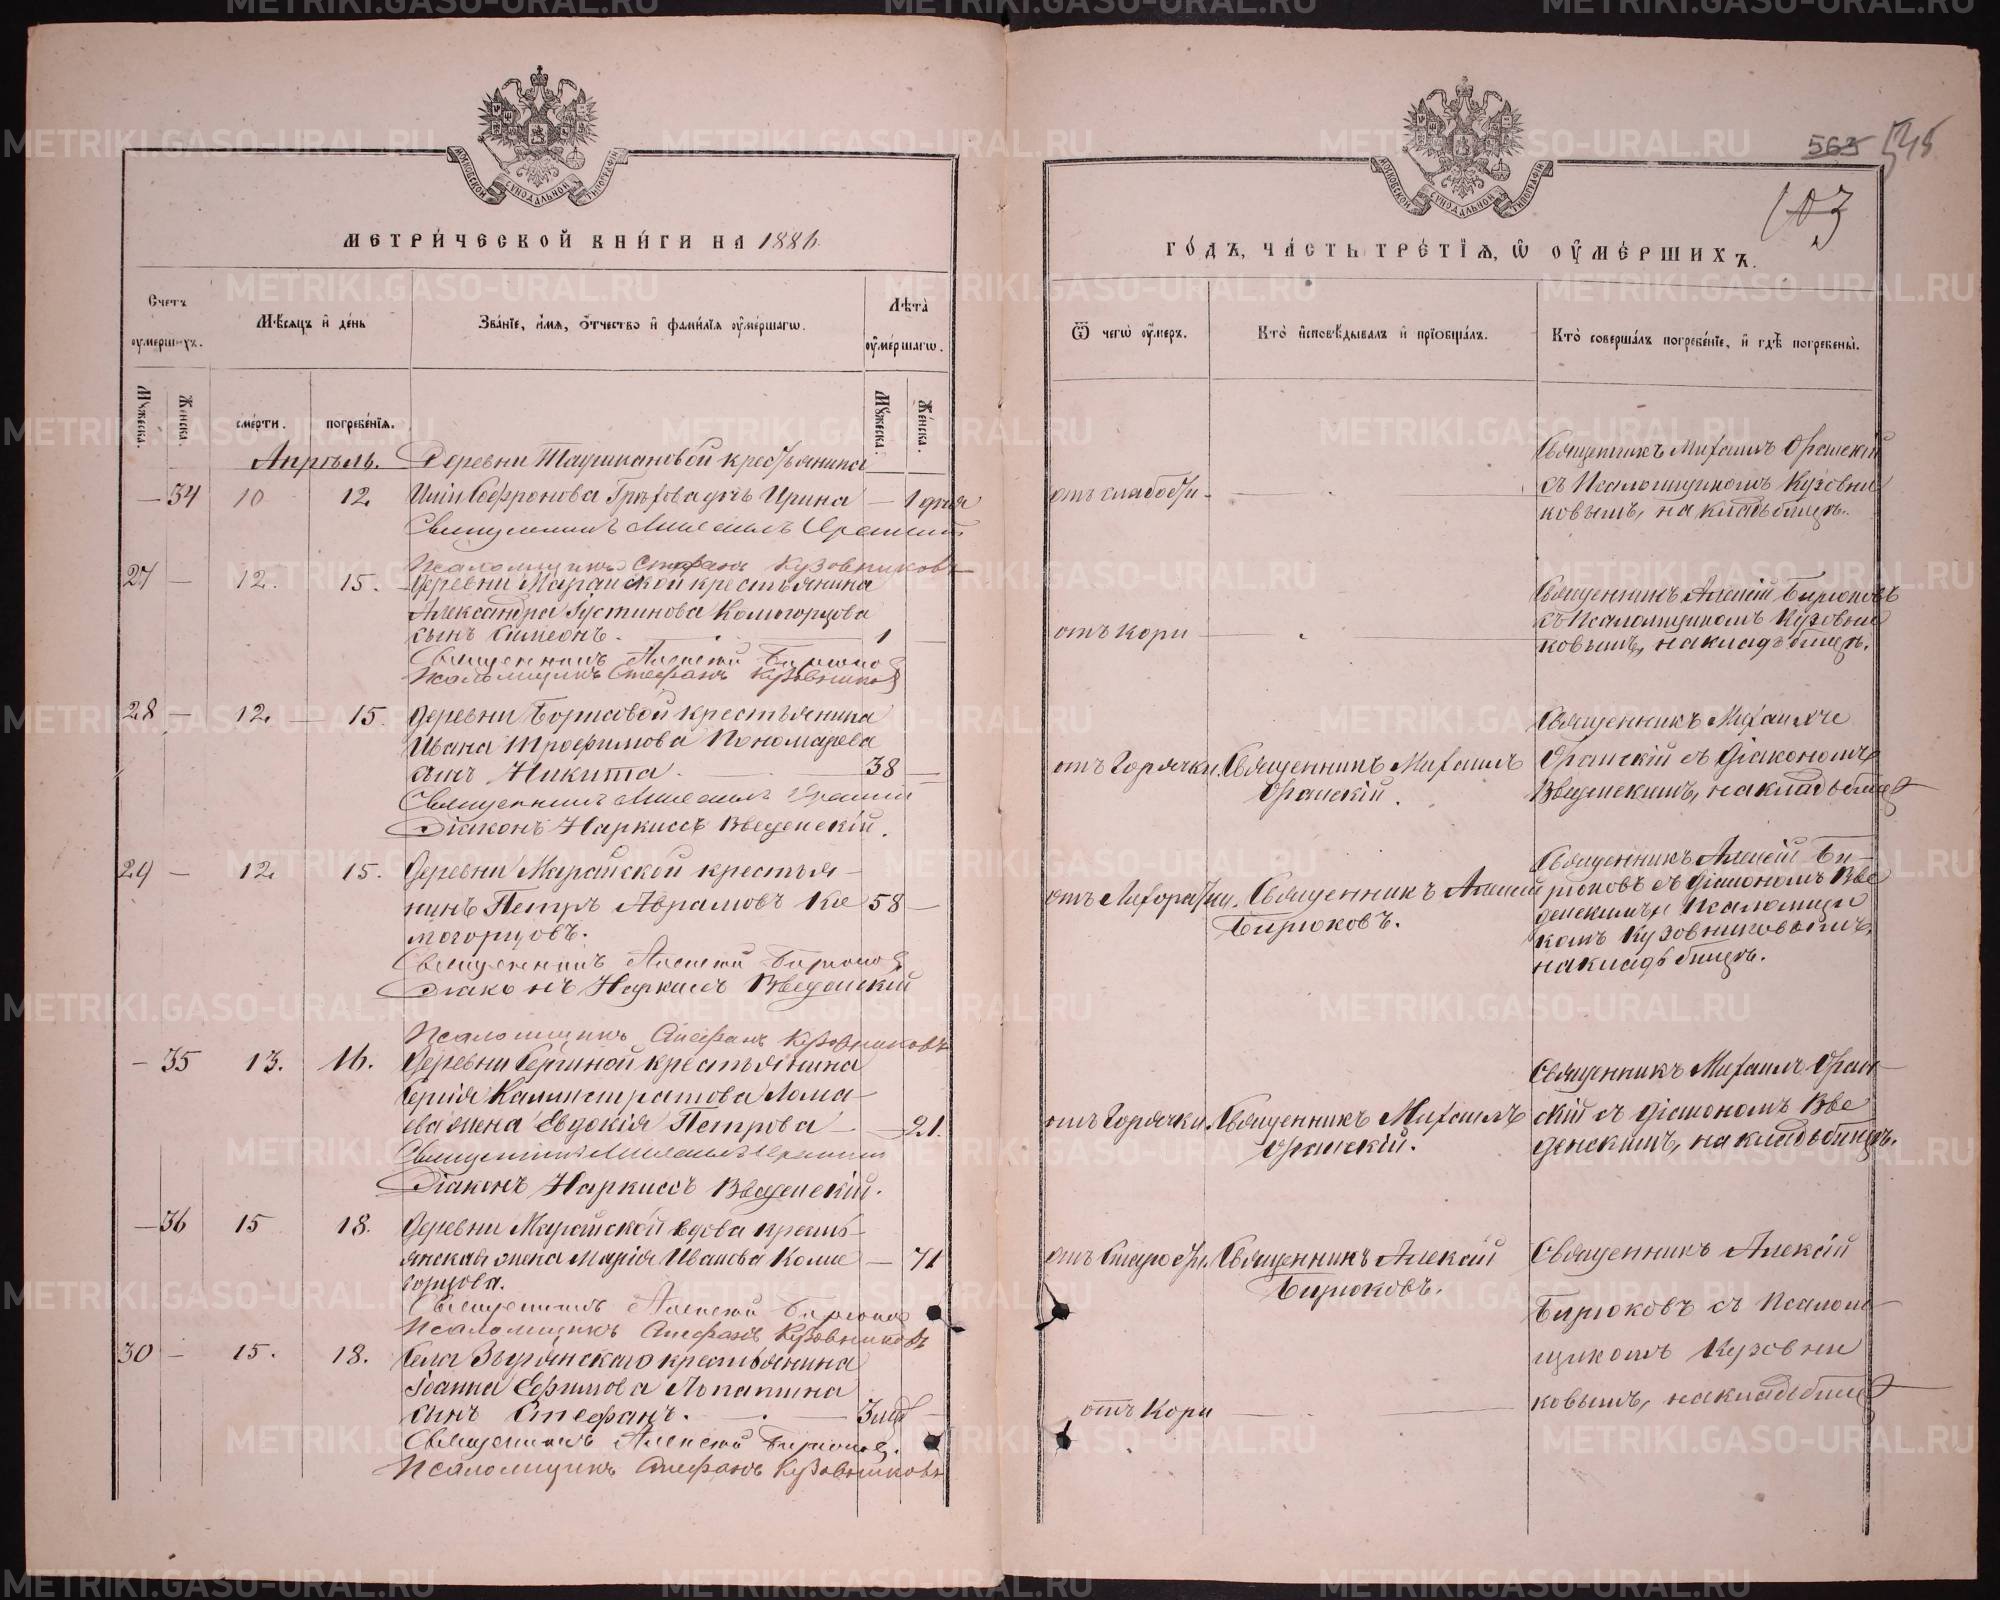 МЕТРИЧЕСКОЙ КНИГИ НА 1886
Счетъ оумершихъ.
Мѣсяцъ и день
Званіе, имя, отчество и фамилія оумершагω.
Лѣта оумершагω.
Мужеска.
Женска.
смерти.
погребенія.
Мужеска.
Женска.
Апрѣль.
Деревни Таушкановой крестьянина
— 34 10 12 Софронова дочь Ирина — 1 дня
Священникъ Михаилъ Оранскій
Псаломщикъ Стефанъ Кузовниковъ
27 — 12. 15. Деревни Марайской крестьянина
Александра Іустинова Комогорцова
сынъ Симеонъ. — 1 —
Священникъ Алексій Бирюковъ
Псаломщикъ Стефанъ Кузовниковъ
28 — 12. — 15. Деревни Борисовой крестьянина
Ивана Трофимова Пономарева
сынъ Никита. — 38 —
Священникъ Михаилъ Оранскій
Діаконъ Наркиссъ Введенскій.
29 — 12. 15. Деревни Марайской крестья-
нинъ Петръ Аврамовъ Ко 58 —
могорцовъ.
Священникъ Алексій Бирюковъ
Діаконъ Наркиссъ Введенскій
Псаломщикъ Стефанъ Кузовниковъ
— 35 13. 16. Деревни Сергиной крестьянина
Сергія Каллистратова Лома-
ева жена Евдокія Петрова — 21.
Священникъ Михаилъ Оранскій
Діаконъ Наркиссъ Введенскій.
— 36 15 18. Деревни Марайской вдова кресть-
янская жена Марія Иванова Комо — 71
горцова.
Священникъ Алексій Бирюковъ
Псаломщикъ Стефанъ Кузовниковъ
30 — 15. 18. Села Зырянскаго крестьянина
Іоанна Ефимова Лопатина
сынъ Стефанъ. —
Священникъ Алексій Бирюковъ.
Псаломщикъ Стефанъ Кузовниковъ
563 545
103
ГОДЪ, ЧАСТЬ ТРЕТІЯ, Ѡ ОУМЕРШИХЪ.
Ѿ чегω оумеръ.
Кто исповѣдывалъ и пріобщалъ.
Кто совершалъ погребеніе, и гдѣ погребены.
отъ слабости — —
Священникъ Михаилъ Оранскій
съ Псаломщикомъ Кузовни
ковымъ, на кладбищѣ.
отъ кори —
Священникъ Алексій Бирюковъ
съ Псаломщикомъ Кузовни
ковымъ, на кладбищѣ.
отъ горячки.
Священникъ Михаилъ
Оранскій.
Священникъ Михаилъ
Оранскій съ Діакономъ
Введенскимъ, на кладбищѣ
отъ лихорадки.
Священникъ Алексій
Бирюковъ.
Священникъ Алексій Би-
рюковъ съ Діакономъ Вве
денскимъ и Псаломщи
комъ Кузовниковымъ,
на кладбищѣ.
отъ горячки.
Священникъ Михаилъ
Оранскій.
Священникъ Михаилъ Оран-
скій съ Діакономъ Вве
денскимъ, на кладбищѣ.
отъ старости.
Священникъ Алексій
Бирюковъ.
Священникъ Алексій
Бирюковъ съ Псалом-
щикомъ Кузовни
ковымъ, на кладбищѣ
отъ кори — —